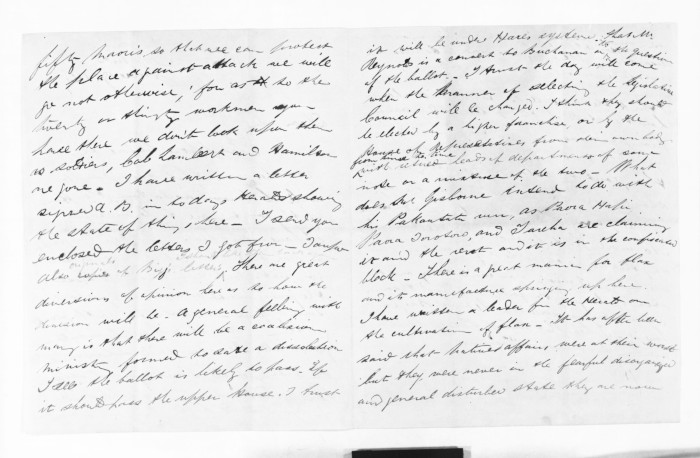 fifty Maoris, so that we can protect
the place against attack we will
go not otherwise, for as to the
twenty or thirty workmen you
have there we don't look upon them
as soldiers, Cols Lambert and Hamilton
are gone - I have written a letter
signed A. B. in to days Herald showing
the state of things here - I send you
enclosed the letters I got from
also copies of letters, There are great
diversions of opinion here as to how the
division will be. A general feeling with
many is that there will be a coalition
ministry formed to save a dissolution
I see the ballot is likely to pass. If
it should pass the upper House. I trust
it will be under Hares system. That Mr
Reynolds is a convert to Buchanan in the question
of the ballot. - I trust the day will come
when the manner of selecting the Legislative
Council will be changed. I think they should
be elected by a higher franchise or by the
House of Representatives from their own body
from time to time
with retired heads of departments of some
note or a mixture of the two - What
does Mr Gisborne intend to do with
his run, as Paora Hapi
Paora Torotoro, and Tareha are claiming
it and the rent and it is in the confiscated
block - There is a great mania for flax
and its manufacture springing up here.
I have written a leader for the Herald on
the cultivation of flax - It has often been
said that Natives affairs were at their worst
but they were never in the fearful disorganized
and general disturbed state they are now